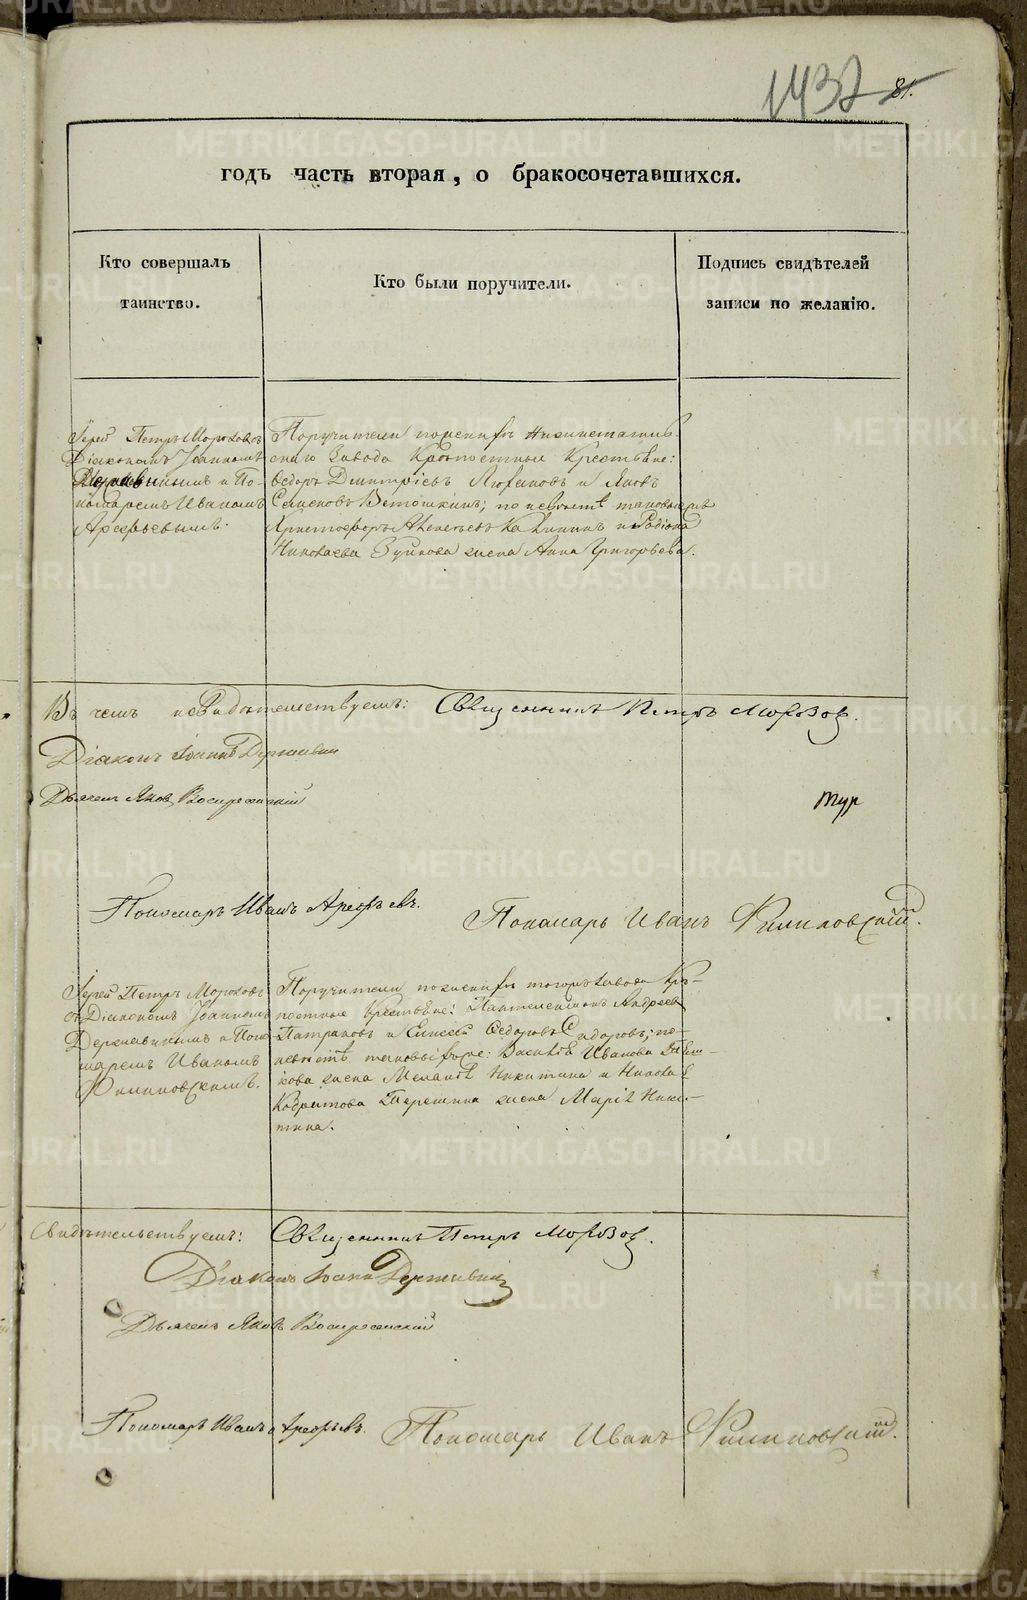 1437 81.
годъ часть вторая, о бракосочетавшихся.
Кто совершалъ
таинство.
Кто были поручители.
Подпись свидѣтелей
записи по желанію.
Іерей Петръ Морозовъ съ
Діакономъ Іоанномъ
Державинымъ и По-
номаремъ Иваномъ
Арефьевымъ.
Поручители по женихѣ Нижнетагиль-
скаго Завода Крѣпостные Крестьяне:
Ѳедоръ Димитріевъ и Яковъ
Семеновъ Ветошкинъ; по невѣстѣ таковыежъ
Христофоръ и Родіона
Николаева жена Анна Григорьева.
Въ чемъ и свидѣтельствуемъ: Священникъ Петръ Морозов.
Діаконъ Іоаннъ Державин
Дьячек Яков Воскресенский
тур
Пономаръ Иванъ Арефьевъ.
Пономарь Иванъ Филиповский.
Іерей Петръ Морозовъ
съ Діакономъ Іоанномъ
Державинымъ и Поно-
маремъ Иваномъ
Филиповскимъ.
Поручители по женихѣ тогожъ завода Крѣ-
постные Крестьяне: Пантелеймонъ Андреевъ
Патраковъ и Елисей Ѳедоровъ Сидоровъ; по
невѣстѣ таковыежъ: Василія Иванова
кова жена Меланія Никитина и Николая
Терешина жена Марія Ники-
тина.
Свидѣтельствуемъ: Священникъ Петръ Морозов.
Діаконъ Іоаннъ Державин
Дьячекъ Яковъ Воскресенский
Пономаръ Иванъ Арефьевъ. Пономарь Иванъ Филиповский.